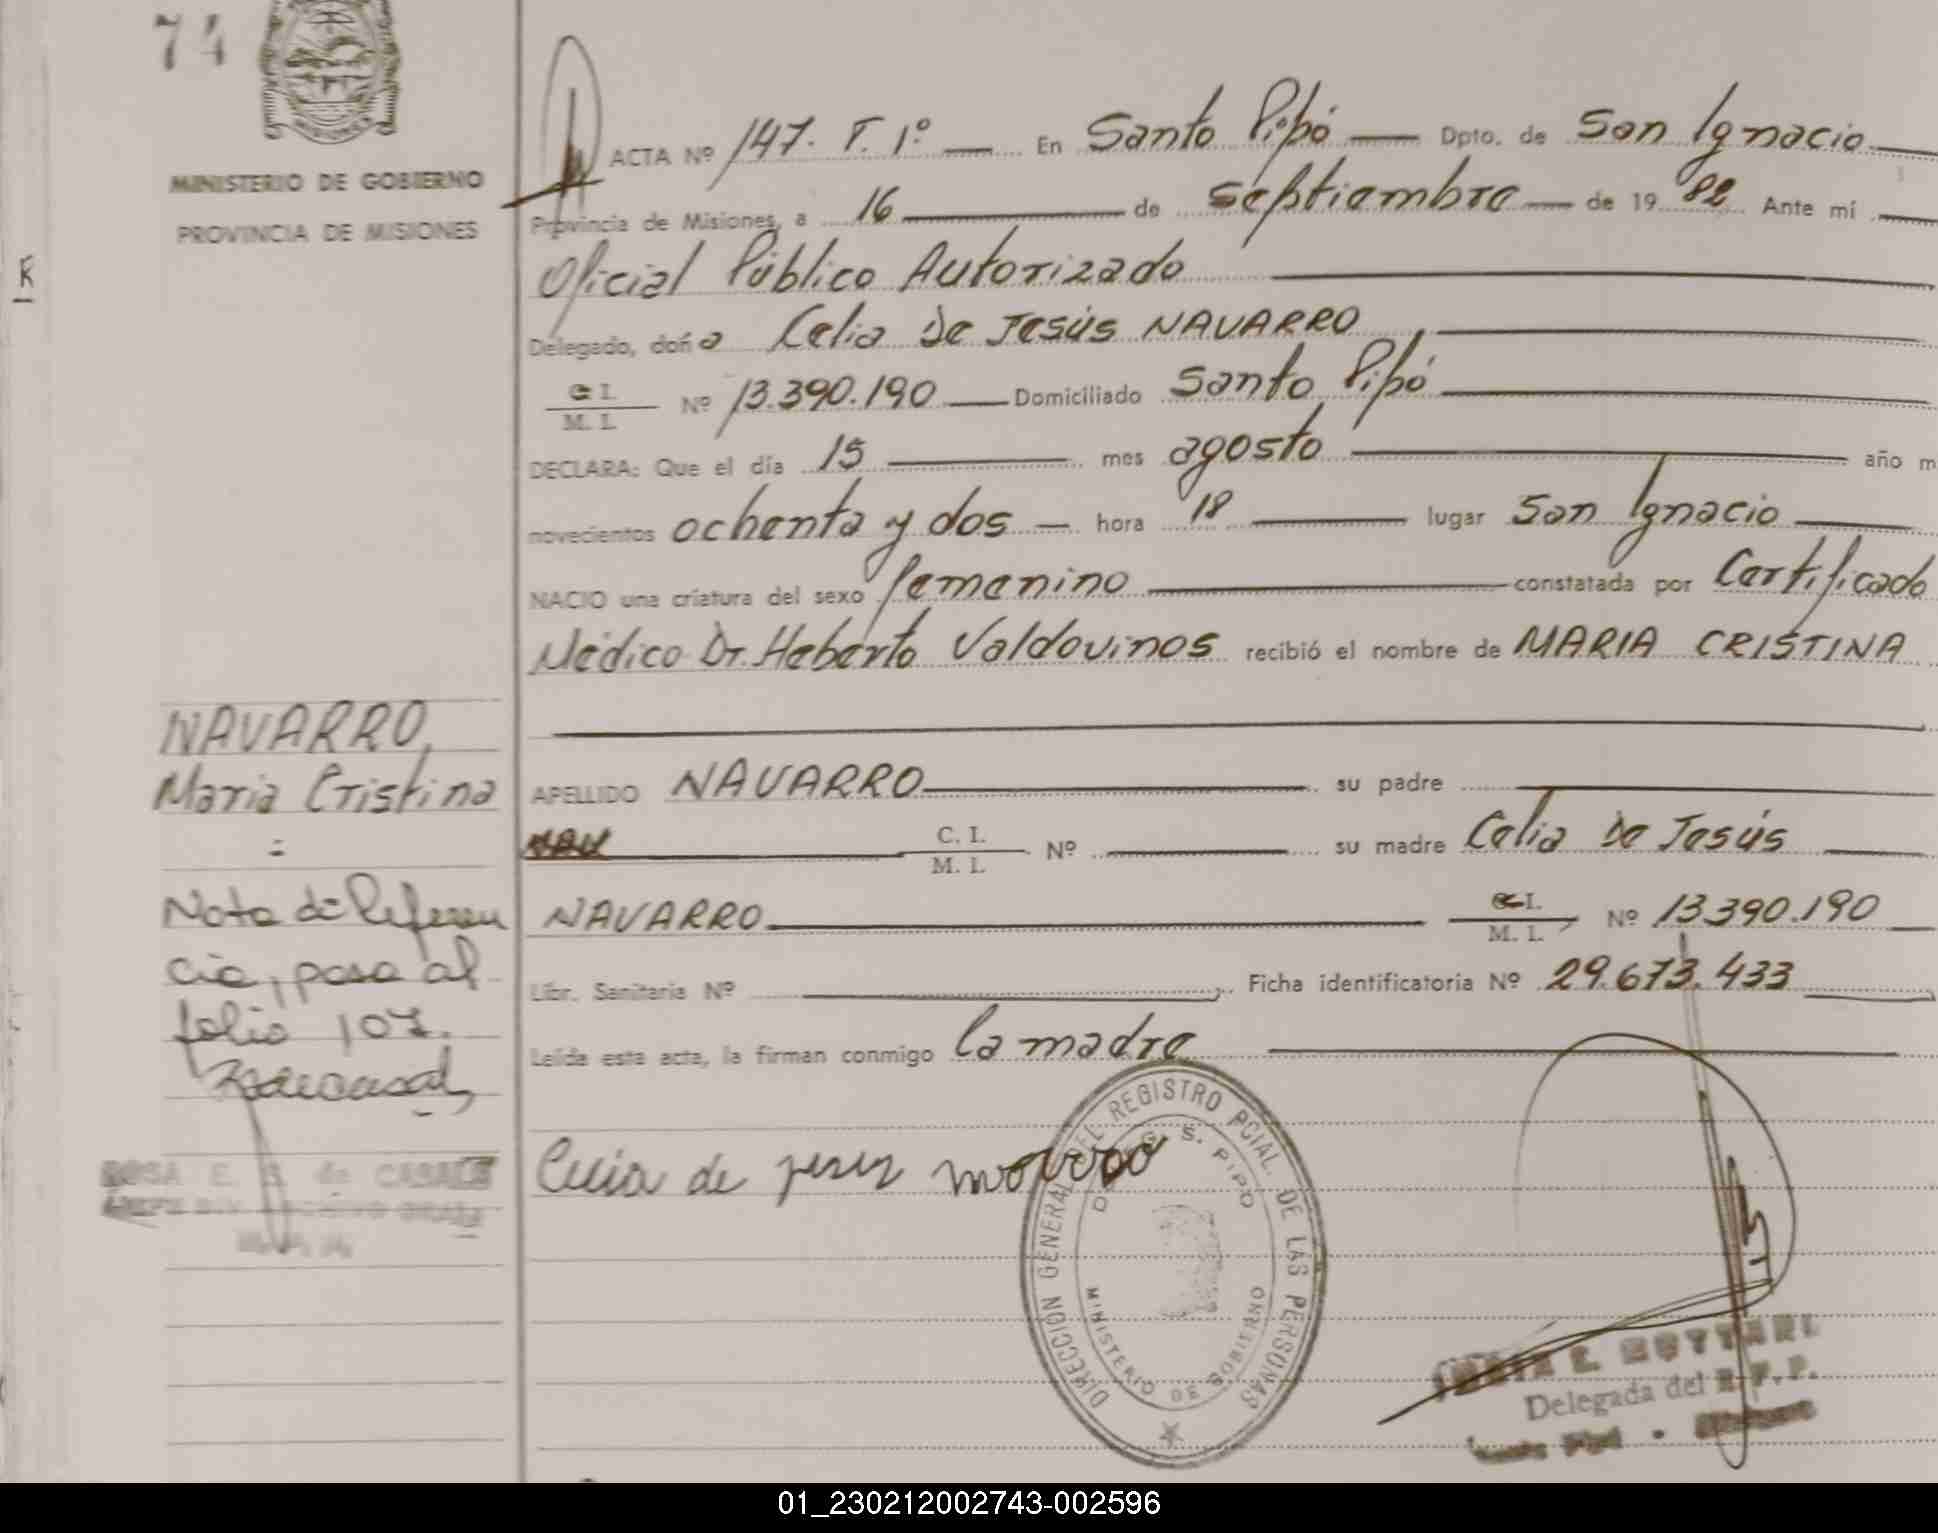 74
MISIONES
MINISTERIO DE GOBIERNO
PROVINCIA DE MISIONES
K
ACTA Nº 147. T. 1º — En Santo Pipó — Dpto. de San Ignacio
Provincia de Misiones, a 16 — de septiembre — de 1982 Ante mí
Oficial Público Autorizado
Delegado, doña Celia De Jesús NAVARRO
C. I.
M. I. Nº 13.390.190 — Domiciliado Santo Pipó
DECLARA: Que el día 15 — mes agosto — año m
novecientos ochenta y dos — hora 18 — lugar San Ignacio
NACIO una criatura del sexo femenino — constatada por Certificado
Médico Dr. Heberto Valdovinos recibió el nombre de MARIA CRISTINA
NAVARRO,
Maria Cristina
APELLIDO NAVARRO — su padre
C. I.
M. I. Nº — su madre Celia De Jesús
NAVARRO — C. I.
M. I. Nº 13.390.190
Libr. Sanitaria Nº — Ficha identificatoria Nº 29.673.433
Leída esta acta, la firman conmigo la madre
Nota de Referen
cia, pasa al
folio 107.
ROSA E. S. de CASALS
de jesus
DIRECCION GENERAL DEL REGISTRO PCIAL. DE LAS PERSONAS
S. PIPO
MINISTERIO DE GOBIERNO
Delegada del R.P.P.
01_230212002743-002596